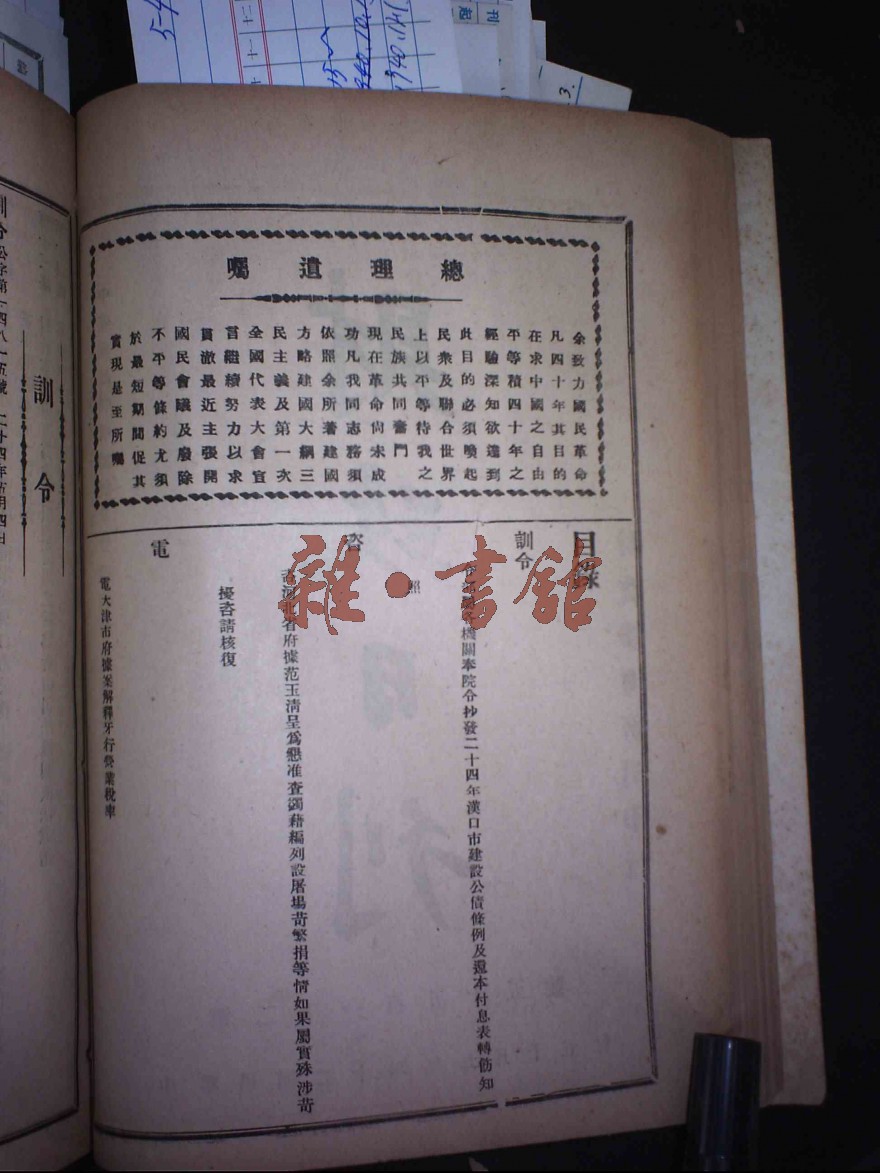 總理遺囑
余致力國民革命
凡四十年其目的
在求中國之自由
平等積四十年之
經驗深知欲達到
此目的必須喚起
民衆及聯合世界
上以平等待我之
民族共同奮鬥
現在革命尙未成
功凡我同志務須
依照余所著建國
方略建國大綱三
民主義及第一次
全國代表大會宣
言繼續努力以求
貫澈最近主張開
國民會議及廢除
不平等條約尤須
於最短期間促其
實現是至所囑
目錄
訓令
機關奉院令抄發二十四年漢口市建設公債條例及還本付息表轉飭知
照
咨
咨河北省府據范玉清呈爲懇准查蠲藉編列設屠場苛繁捐等情如果屬實殊涉苛
擾咨請核復
電
電天津市府據案解釋牙行營業稅率
訓令
訓令
雜·書館